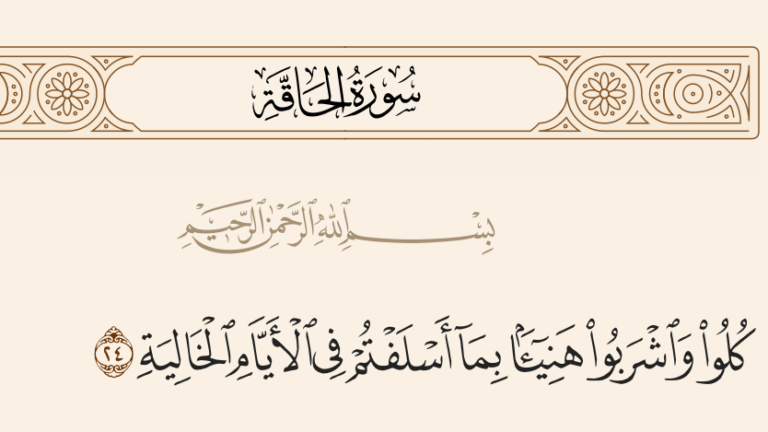 سُورَةُ الحَاقَّةِ
بِسْمِ ٱللَّهِ ٱلرَّحْمَٰنِ ٱلرَّحِيمِ
كُلُوا۟ وَٱشْرَبُوا۟ هَنِيٓـًٔۢا بِمَآ أَسْلَفْتُمْ فِى ٱلْأَيَّامِ ٱلْخَالِيَةِ ٢٤